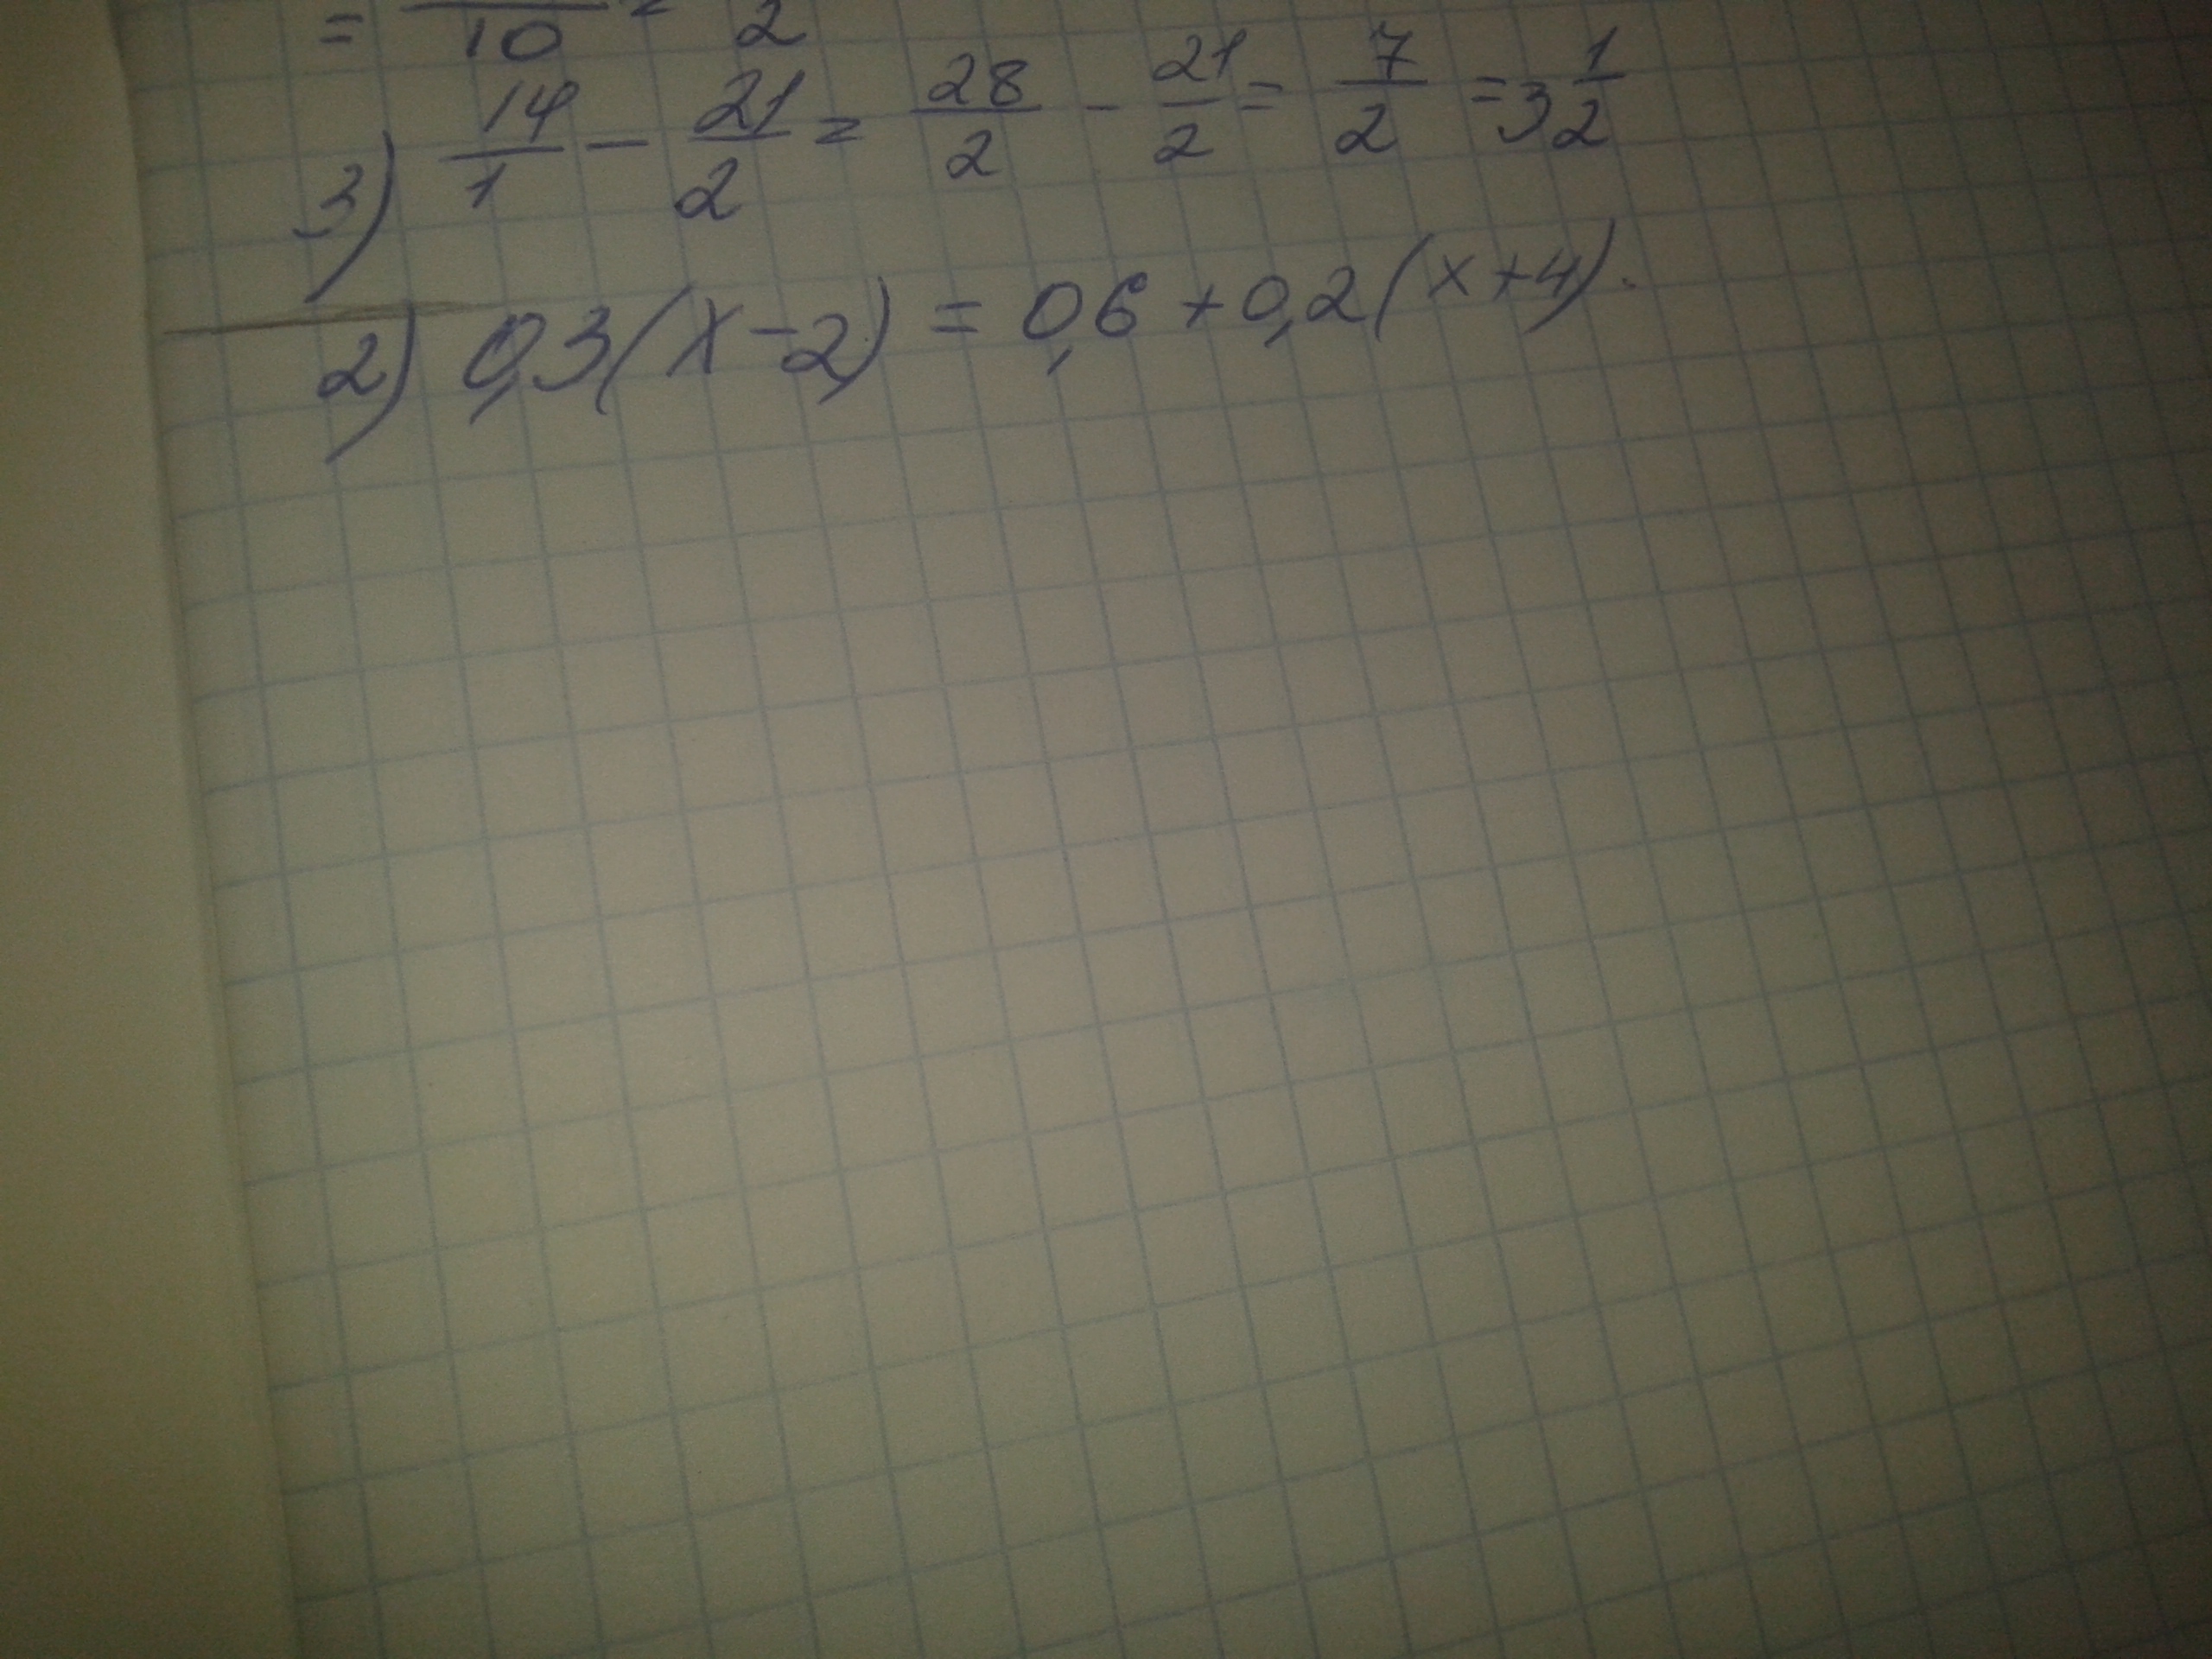 = /10 = 2
3) 14/1 - 21/2 = 28/2 - 21/2 = 7/2 = 3 1/2
2) 0,3(x-2) = 0,6+0,2(x+4).